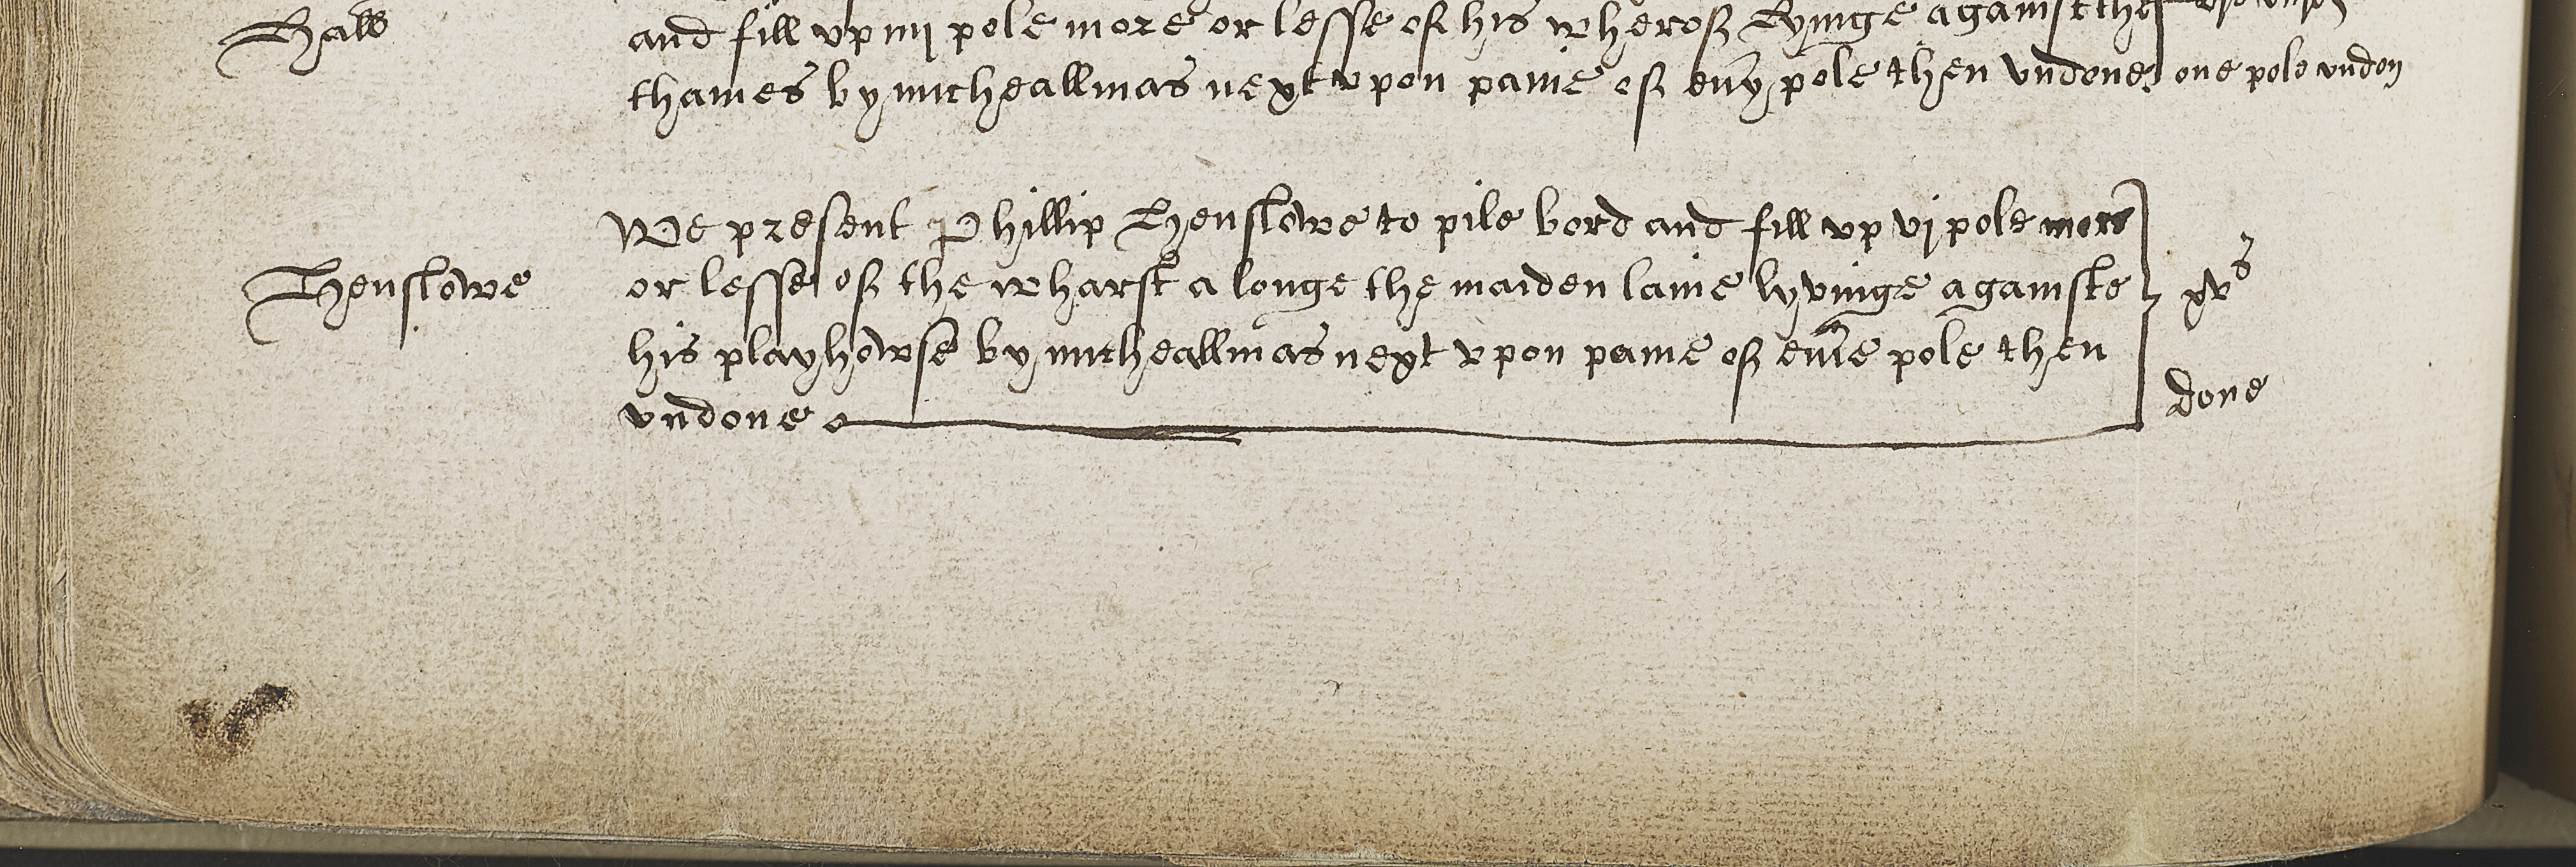 Hall
and fill vp iiij pole more or lesse of his wherof Lyinge against the
thames by micheallmas next vpon paine of eu'y pole then vndone one pole vndon
We present Phillip Henslowe to pile bord and fill vp vj pole more
Henslowe or lesse of the wharft a longe the maiden laine lyvinge againste xxs
his playhowse by micheallmas next vpon paine of eu'ie pole then
vndone done